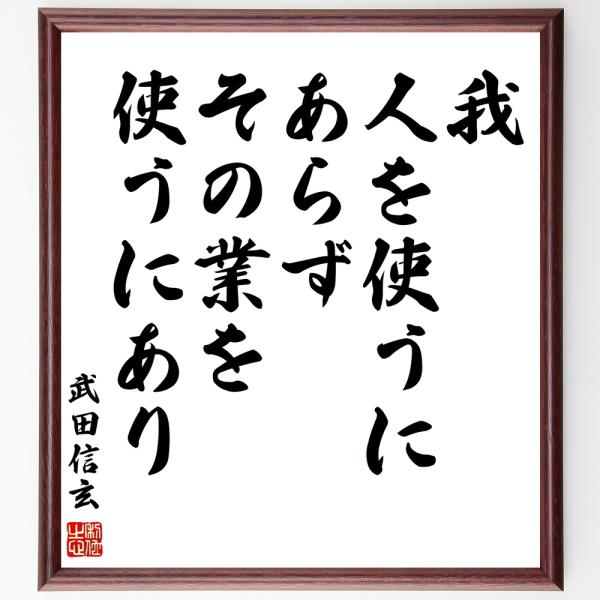 我
人を使うに
あらず
その業を
使うにあり
武田信玄